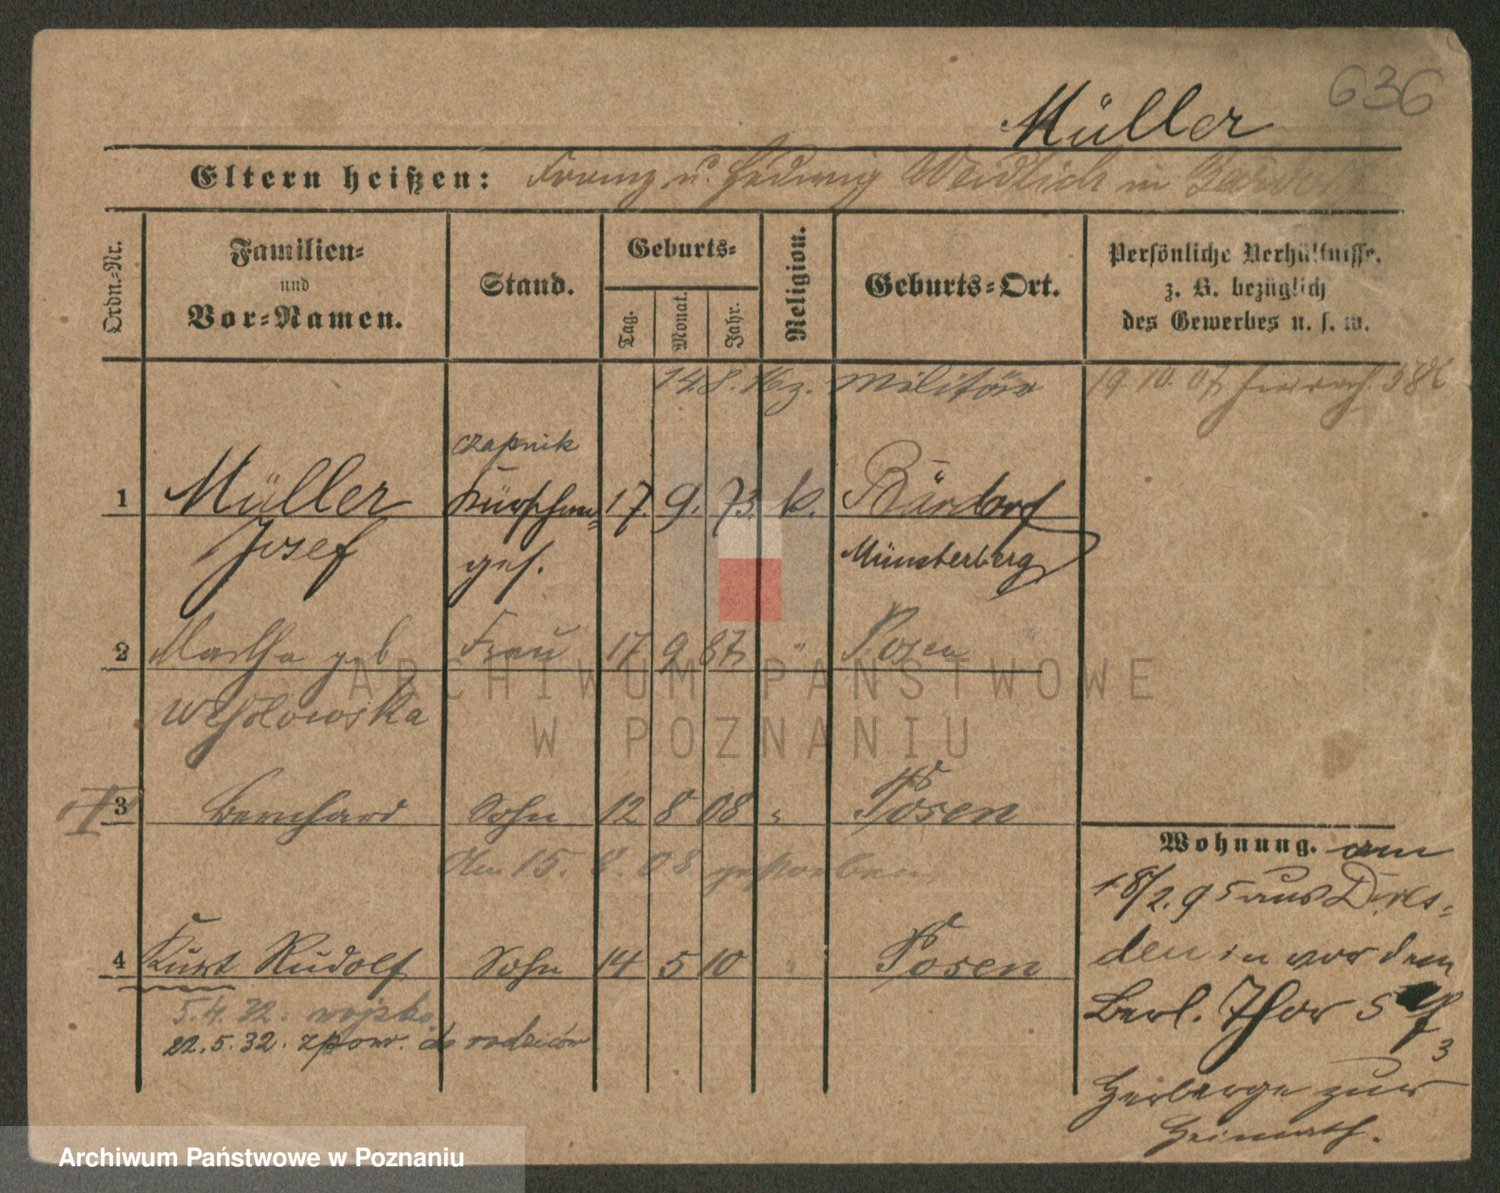 636
Müller
Eltern heißen: Franz u. Hedwig Weidlich in
Ordn.-Nr.
Familien-
und
Vor-Namen.
Stand.
Geburts-
Tag.
Monat.
Jahr.
Religion.
Geburts-Ort.
Persönliche Verhältnisse,
z. B. bezüglich
des Gewerbes u. s. w.
Militär 19. 10. 07
czapnik
1 Müller Kürschner- 17. 9. 73. k. Bärdorf
Josef ges. Münsterberg
2 Martha geb Frau 17 9 87 " Posen
Wesolowska
3 Bernhard Sohn 12 8 08 " Posen
Am 15. 8. 08 gestorben
4 Kurt Rudolf Sohn 14 5 10 " Posen
5.4.32. wojsko
22.5.32. zpow. do rodziców
Wohnung. am
18/2.95 aus Dres-
den in vor dem
Berl. Thor 5
3
Herberge zur
Heimath.
ARCHIWUM PAŃSTWOWE
W POZNANIU
Archiwum Państwowe w Poznaniu